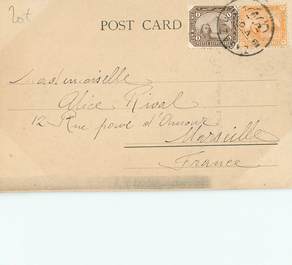 20f
POST CARD
Mademoiselle
Alice Rival
12 Rue d'Amour
Marseille
France